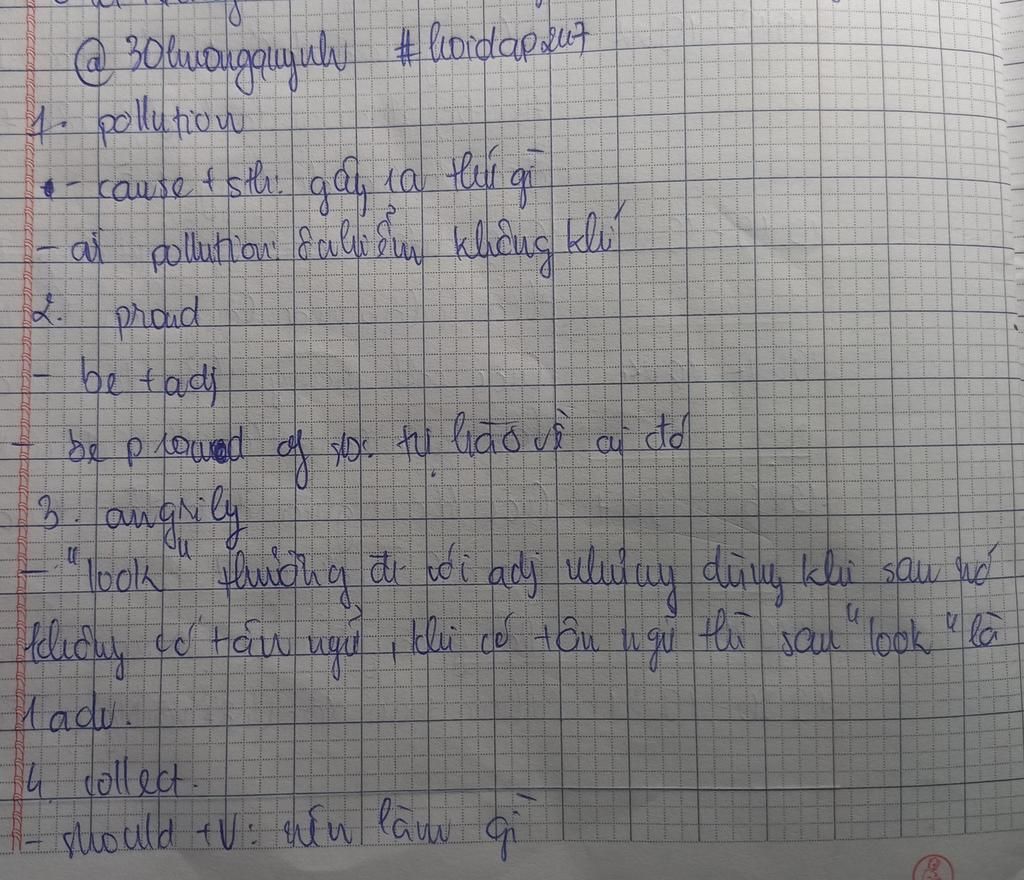 @ 30luongquynh #hoidap247
1. pollution
- cause + sth: gây ra thứ gì
- air pollution: ô nhiễm không khí
2. proud
- be + adj
- be proud of sb: tự hào về ai đó
3. angrily
- "look" thường đi với adj nhưng dùng khi sau nó
không có tân ngữ, khi có tân ngữ thì sau "look" là
1 adv.
4. collect.
- should + V: nên làm gì